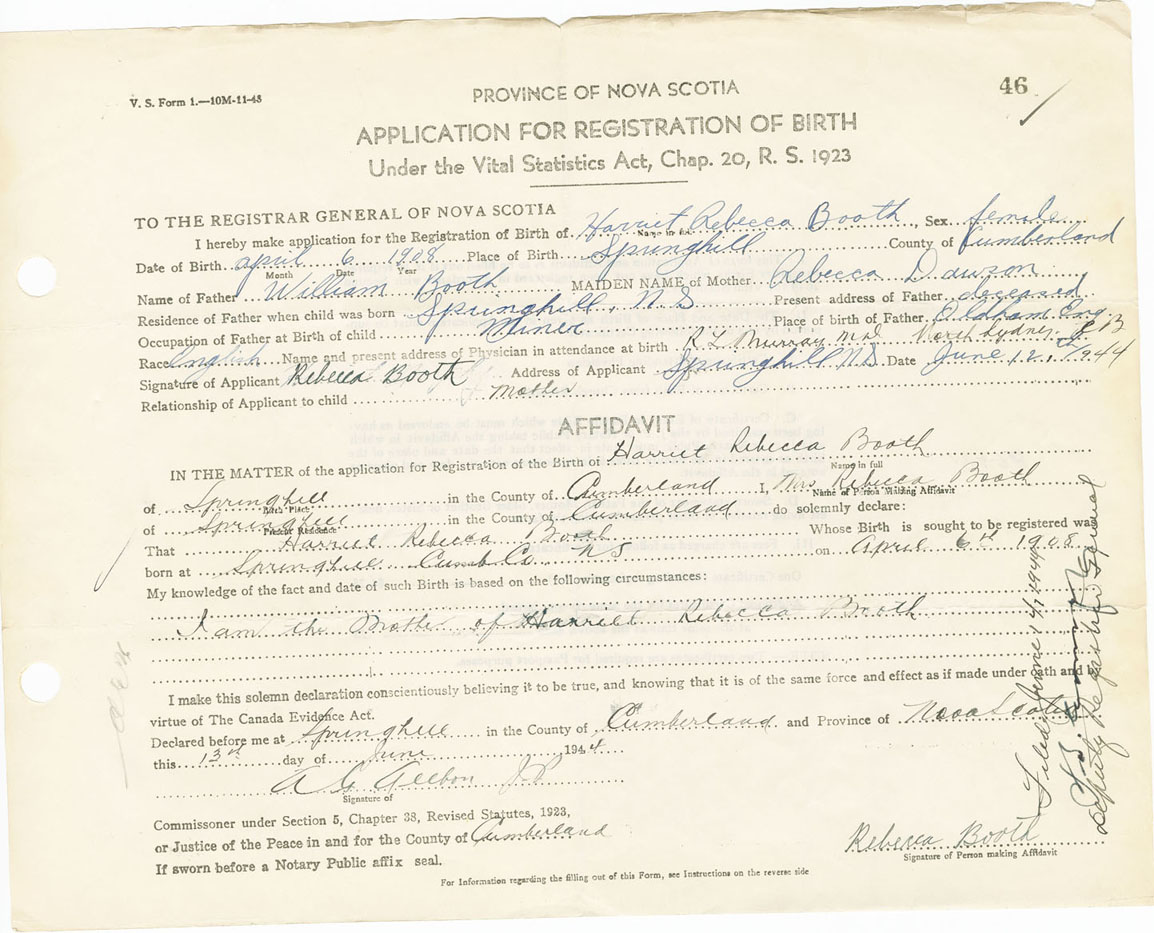 V. S. Form 1.—10M-11-43
PROVINCE OF NOVA SCOTIA
46
APPLICATION FOR REGISTRATION OF BIRTH
Under the Vital Statistics Act, Chap. 20, R. S. 1923
TO THE REGISTRAR GENERAL OF NOVA SCOTIA
I hereby make application for the Registration of Birth of Harriet Rebecca Booth, Sex female
Name in full
Date of Birth april 6 1908 Place of Birth Springhill County of Cumberland
Month Date Year
Name of Father William Booth MAIDEN NAME of Mother Rebecca Dawson
Residence of Father when child was born Springhill, N S Present address of Father deceased
Occupation of Father at Birth of child Miner Place of birth of Father Oldham Eng.
Race English Name and present address of Physician in attendance at birth R L Murray M D North Sydney C B
Signature of Applicant Rebecca Booth Address of Applicant Springhill N.S. Date June 12, 1944
Relationship of Applicant to child Mother
AFFIDAVIT
IN THE MATTER of the application for Registration of the Birth of Harriet Rebecca Booth
Name in full
of Springhill in the County of Cumberland I, Mrs Rebecca Booth
Birth Place Name of Person Making Affidavit
of Springhill in the County of Cumberland do solemnly declare:
Present Residence
That Harriet Rebecca Booth Whose Birth is sought to be registered was
born at Springhill Cumb. Co. NS on April 6th 1908
My knowledge of the fact and date of such Birth is based on the following circumstances:
I am the Mother of Harriet Rebecca Booth
I make this solemn declaration conscientiously believing it to be true, and knowing that it is of the same force and effect as if made under oath and by
virtue of The Canada Evidence Act.
Declared before me at Springhill in the County of Cumberland and Province of Nova Scotia
this 13th day of June 1944
A G J P
Signature of
Commissoner under Section 5, Chapter 38, Revised Statutes, 1923,
or Justice of the Peace in and for the County of Cumberland
If sworn before a Notary Public affix seal.
Rebecca Booth
Signature of Person making Affidavit
For Information regarding the filling out of this Form, see Instructions on the reverse side
Filed June 14, 1944
Deputy Registrar General